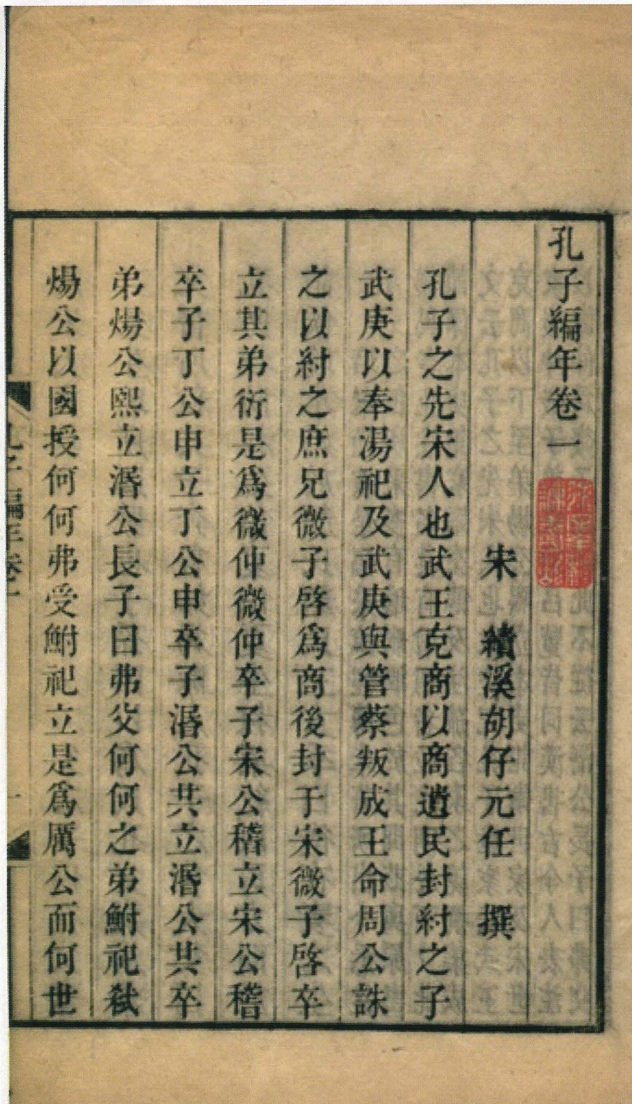 孔子編年卷一
宋 績溪胡仔元任 撰
孔子之先宋人也武王克商以商遺民封紂之子
武庚以奉湯祀及武庚與管蔡叛成王命周公誅
之以紂之庶兄微子啓爲商後封于宋微子啓卒
立其弟衍是爲微仲微仲卒子宋公稽立宋公稽
卒子丁公申立丁公申卒子湣公共立湣公共卒
弟煬公熙立湣公長子曰弗父何何之弟鮒祀弑
煬公以國授何何弗受鮒祀立是爲厲公而何世
孔子編年卷一
一